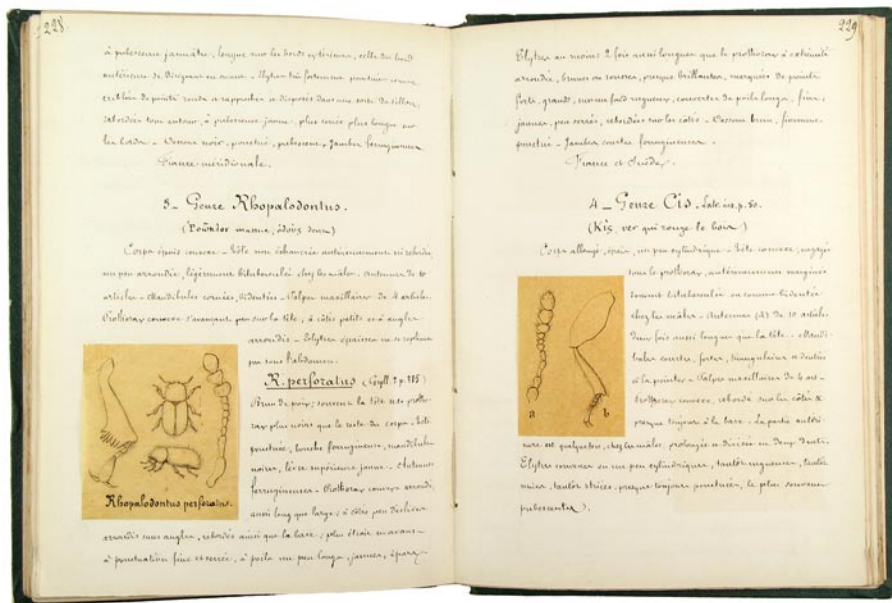 228.
à pubescence jaunâtre, longue sur les bords extérieurs, celle du bord
antérieure se dirigeant en avant - Elytres très fortement ponctués comme
criblés de points ronds et rapprochés et disposés dans une sorte de sillon,
rebordées tout autour, à pubescence jaune, plus serrée plus longue sur
les bords - Dessous noir, ponctué, pubescent, Jambes ferrugineuses
France méridionale.
3- Genre Rhopalodontus.
massue, dent)
Corps épais convexe - Tête non échancrée antérieurement ni rebordée
un peu arrondie, légèrement bituberculée chez les mâles. Antennes de 10
articles - Mandibules cornées, bidentées - Palpes maxillaires de 4 articles.
Prothorax convexe s'avançant peu sur la tête, à côtés petits et à angles
arrondis - Elytres épaisses ne se repliant
pas sous l'abdomen.
R. perforatus (Gyll. p. 385)
Brun de poix; souvent la tête et le protho-
rax plus noirs que le reste du corps - Tête
ponctuée, bouche ferrugineuse, mandibules
noires, lèvre supérieure jaune - Antennes
ferrugineuses - Prothorax convexe arrondi,
aussi long que large; à côtés peu déclives
arrondis sans angles, rebordés ainsi que la base; plus étroit en avant -
à ponctuation fine et serrée, à poils un peu longs, jaunes, épars -
Rhopalodontus perforatus.
229
Elytres au moins 2 fois aussi longues que le prothorax à extrémité
arrondie, brunes ou rousses, presque brillantes, marquées de points
forts, grands, sur un fond rugueux, couvertes de poils longs, fins,
jaunes, peu serrés, rebordées sur les côtés - Dessous brun, finement
ponctué - Jambes courtes ferrugineuses -
France et Suède.
4 - Genre Cis. Latr. p. 50.
(Kis, ver qui ronge le bois)
Corps allongé, épais, un peu cylindrique - Tête convexe, engagée
sous le prothorax, antérieurement marginée
souvent bituberculée ou comme bidentée
chez les mâles - Antennes (A) de 10 articles
deux fois aussi longues que la tête. - Mandi-
bules courtes, fortes, triangulaires et dentées
à la pointe - Palpes maxillaires de 4 art-
Prothorax convexe, rebordé sur les côtés &
presque toujours à la base. La partie antéri-
eure est quelquefois, chez les mâles, prolongée et divisée en deux dents.
Elytres convexes ou un peu cylindriques, tantôt rugueuses, tantôt
unies, tantôt striées, presque toujours ponctuées, le plus souvent
pubescentes).
a b